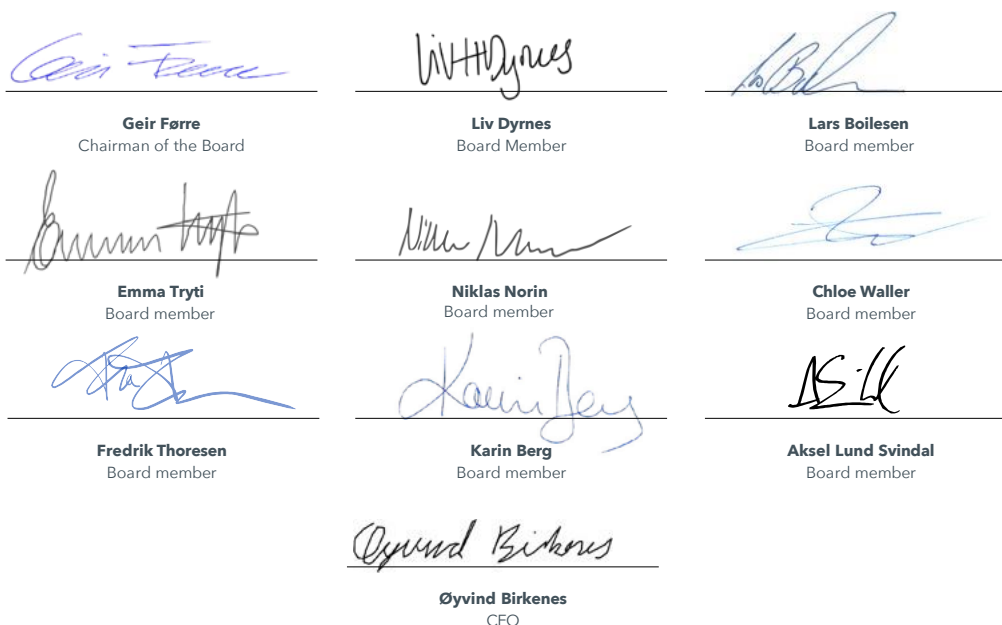 Geir Førre
Chairman of the Board
Liv Dyrnes
Board Member
Lars Boilesen
Board member
Emma Tryti
Board member
Niklas Norin
Board member
Chloe Waller
Board member
Fredrik Thoresen
Board member
Karin Berg
Karin Berg
Board member
Aksel Lund Svindal
Board member
Øyvind Birkenes
Øyvind Birkenes
CEO